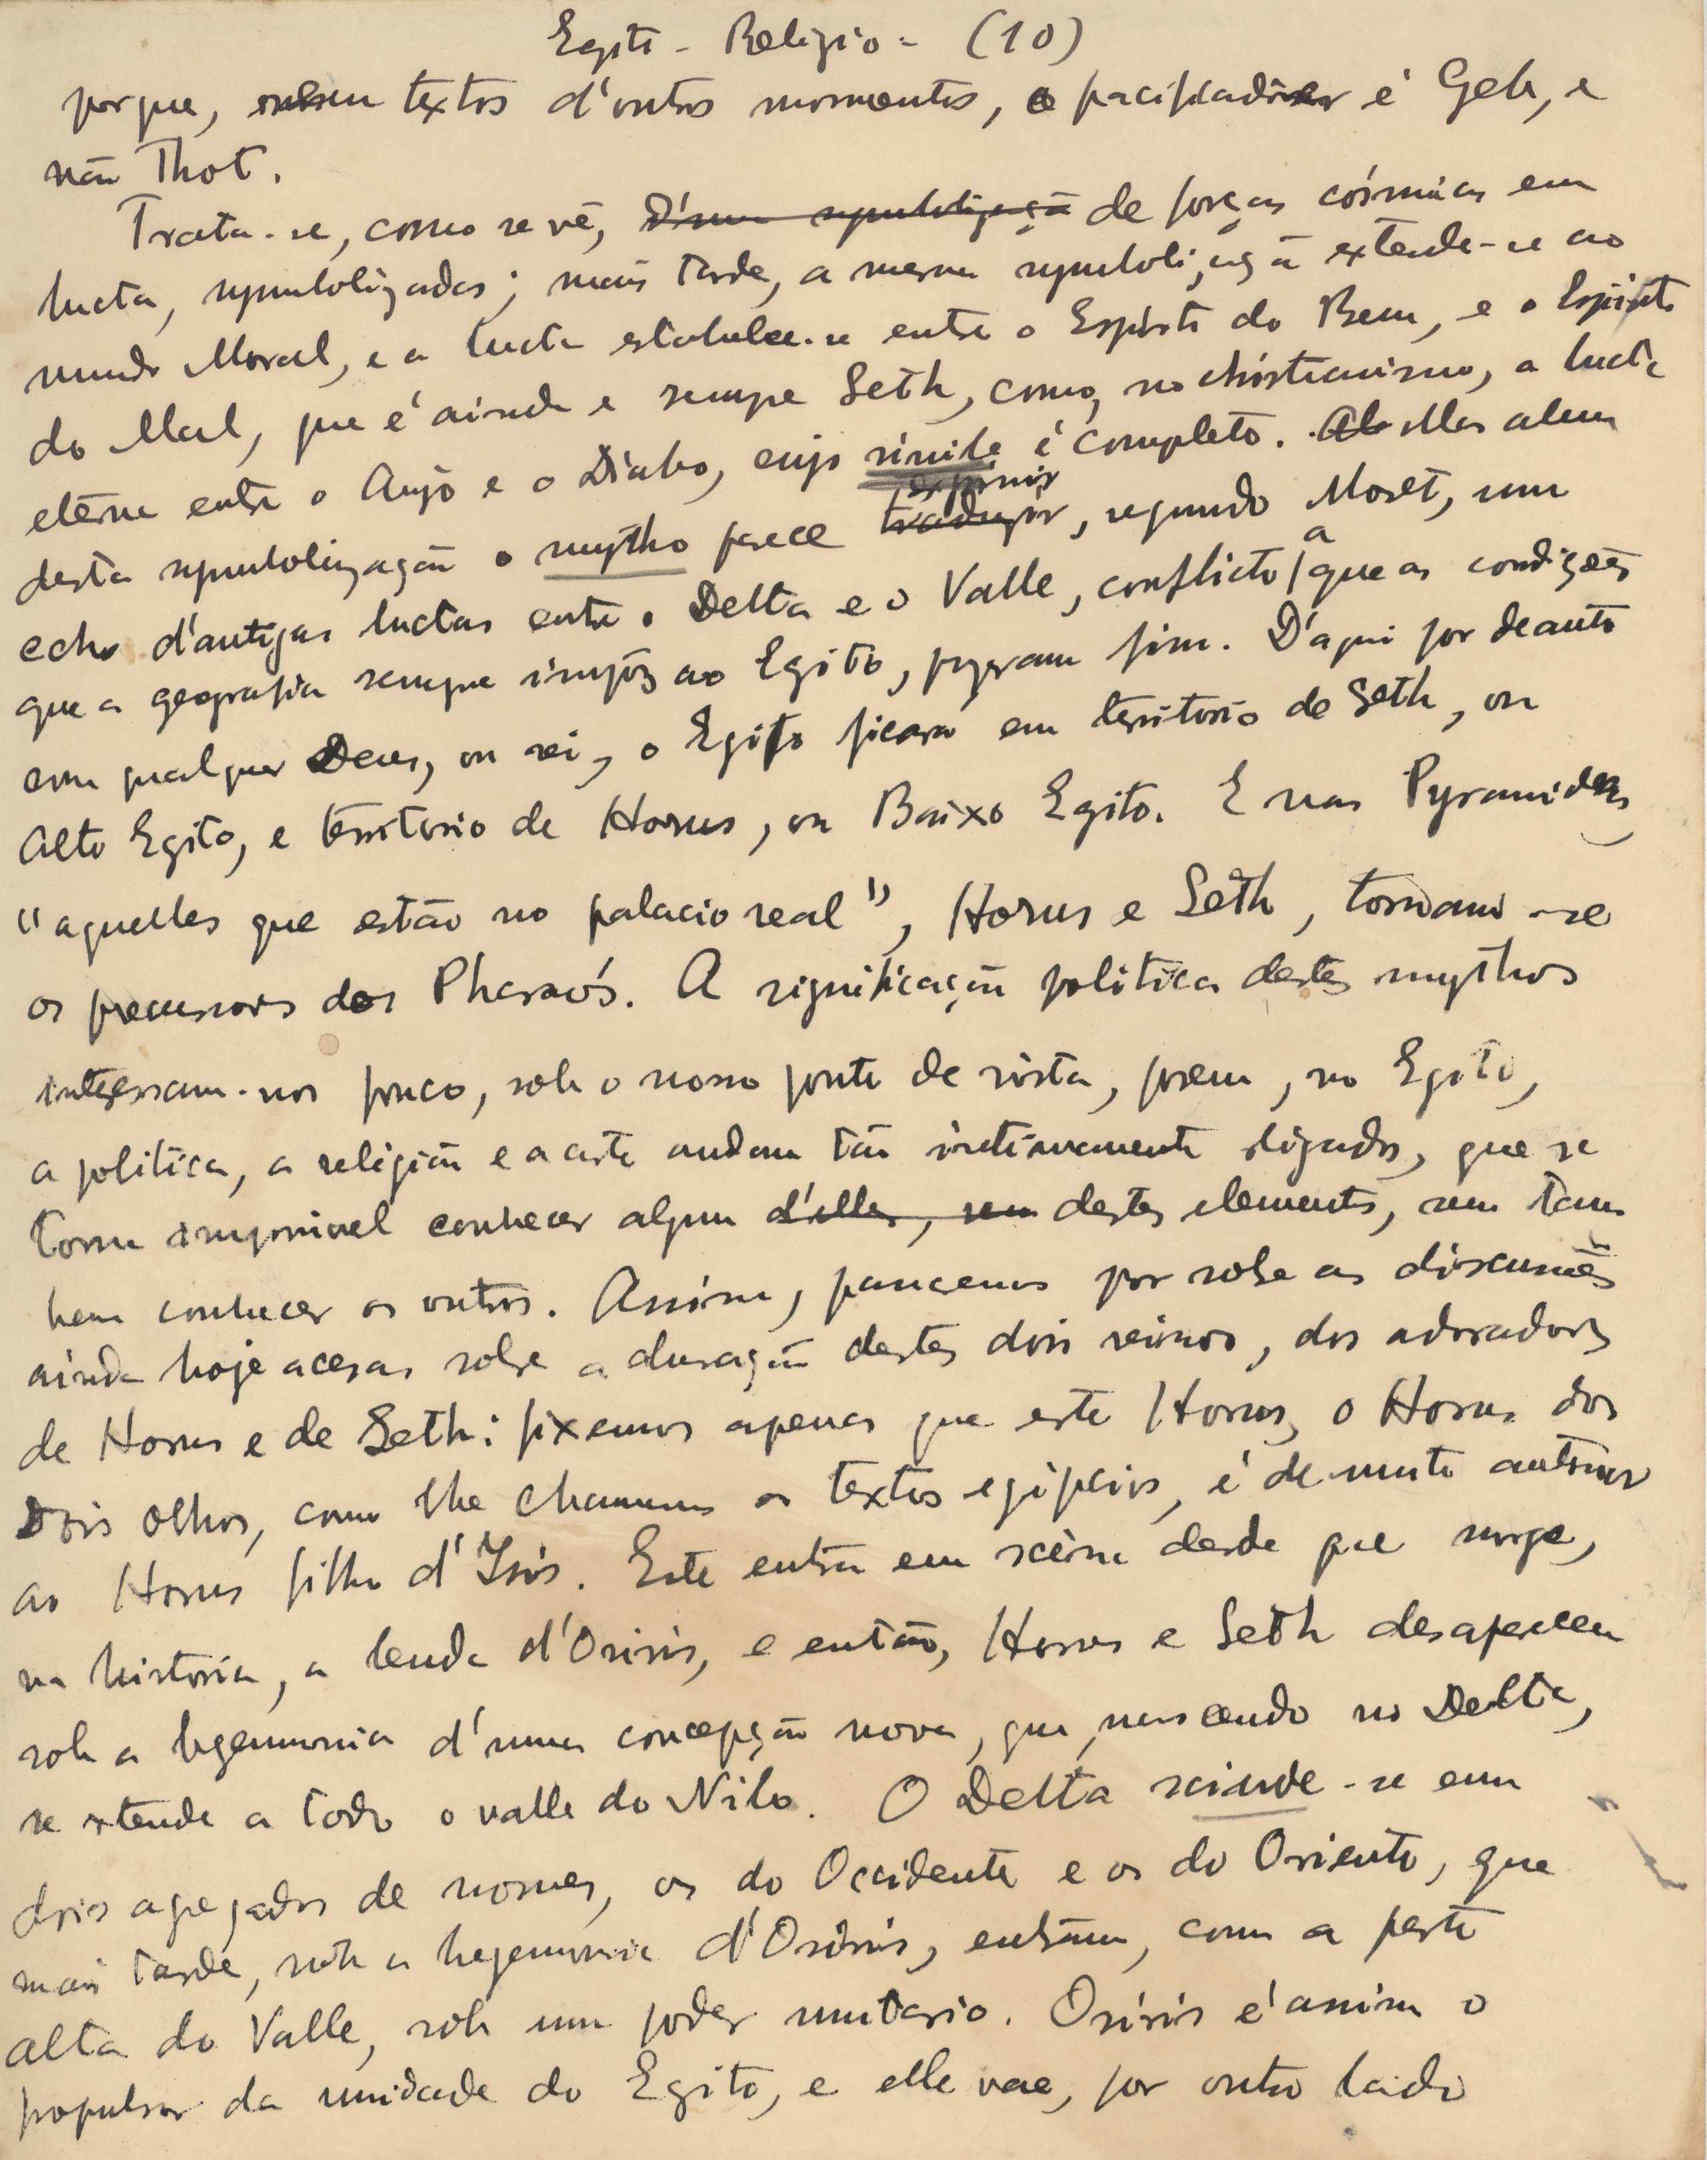 Egito - Religião - (10)
porque, em textos d'outros momentos, o pacificador é Geb, e
não Thot.
Trata-se, como se vê, d'uma symbolização de forças cósmicas em
lucta, symbolizadas; mais tarde, a mesma symbolização extende-se ao
mundo Moral, e a lucta estabelece-se entre o Espirito do Bem, e o Espirito
do Mal, que é ainda e sempre Seth, como, no christianismo, a lucta
eterna entre o Anjo e o Diabo, cujo simile é completo. Mas alem
desta symbolização o mytho parece traduzir exprimir, segundo Moret, um
echo d'antigas luctas entre o Delta e o Valle, conflicto a que as condições
que a geografia sempre impôz ao Egito, puzeram fim. D'aqui por deante
com qualquer Deus, ou rei, o Egito ficará em territorio de Seth, ou
Alto Egito, e territorio de Horus, ou Baixo Egito. E nas Pyramides,
"aquelles que estão no palacio real", Horus e Seth, tornam-se
os precursores dos Pharaós. A significação politica destes mythos
interessam-nos pouco, sob o nosso ponto de vista, porem, no Egito,
a politica, a religião e a arte andam tão intimamente ligados, que se
torna impossivel conhecer algum d'elles, sem destes elementos, sem tam
bem conhecer os outros. Assim, passemos por sobre as discussões
ainda hoje acesas sobre a duração destes dois reinos, dos adoradores
de Horus e de Seth: fixemos apenas que este Horus, o Horus dos
Dois Olhos, como lhe chamam os textos egipcios, é de muito anterior
ao Horus filho d'Isis. Este entra em scena desde que surge,
na historia, a lenda d'Osiris, e então, Horus e Seth desaparecem
sob a hegemonia d'uma concepção nova, que, nascendo no Delta,
se extende a todo o valle do Nilo. O Delta scinde-se em
dois agregados de nomes, os do Occidente e os do Oriente, que
mais tarde, sob a hegemonia d'Osiris, entram, com a parte
alta do Valle, sob um poder unitario. Osiris é assim o
propulsor da unidade do Egito, e elle vae, por outro lado